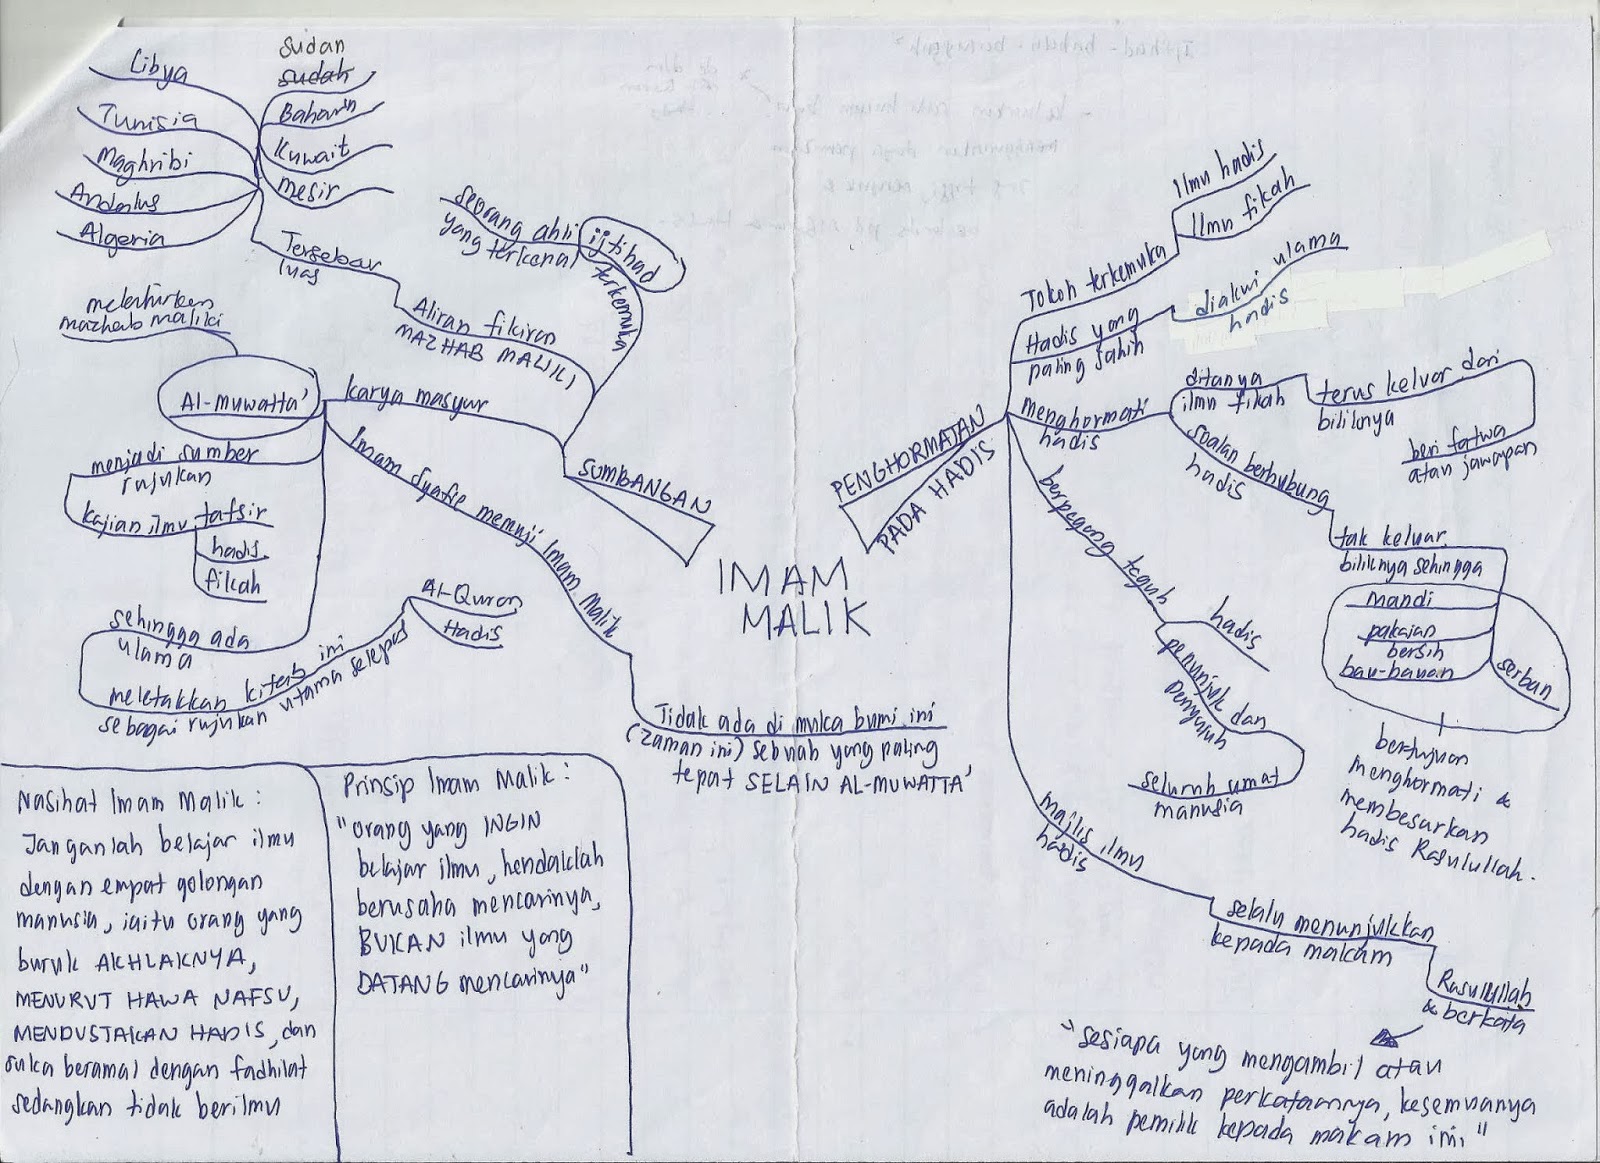 IMAM
MALIK
SUMBANGAN
terkemuka
ijtihad
seorang ahli
yang terkenal
Aliran fikiran
MAZHAB MALIKI
Tersebar
luas
Libya
Tunisia
Maghribi
Andalus
Algeria
sudan
sudah
Baharin
Kuwait
mesir
karya masyur
Al-muwatta'
melahirkan
mazhab maliki
menjadi sumber
rujukan
kajian ilmu tafsir
hadis
fikah
sehingga ada
ulama
meletakkan kitab ini
sebagai rujukan utama selepas
Al-Quran
Hadis
Imam Syafie memuji Imam Malik
Tidak ada di muka bumi ini
(zaman ini) sebuah yang paling
tepat SELAIN AL-MUWATTA'
Nasihat Imam Malik :
Janganlah belajar ilmu
dengan empat golongan
manusia, iaitu orang yang
buruk AKHLAKNYA,
MENURUT HAWA NAFSU,
MENDUSTAKAN HADIS, dan
suka beramal dengan fadhilat
sedangkan tidak berilmu
Prinsip Imam Malik :
"orang yang INGIN
belajar ilmu, hendaklah
berusaha mencarinya,
BUKAN ilmu yang
DATANG mencarinya"
PENGHORMATAN
PADA HADIS
Tokoh terkemuka
Ilmu hadis
Ilmu fikah
Hadis yang
paling sahih
diakui ulama
hadis
menghormati
hadis
ditanya
ilmu fikah
terus keluar dari
biliknya
beri fatwa
atau jawapan
soalan berhubung
hadis
tak keluar
biliknya sehingga
mandi
pakaian
bersih
bau-bauan
serban
bertujuan
menghormati &
membesarkan
hadis Rasulullah.
berpegang teguh
hadis
penunjuk dan
penyuluh
seluruh umat
manusia
majlis ilmu
hadis
selalu menunjukkan
kepada makam
Rasulullah
& berkata
"sesiapa yang mengambil atau
meninggalkan perkataannya, kesemuanya
adalah pemilik kepada makam ini"